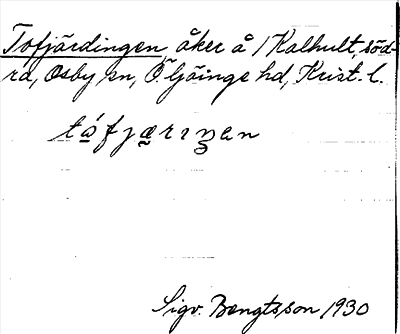 Tofjärdingen, åker å 1 Kalhult, söd-
ra, Osby sn, Ö. Göinge hd, Krist. l.
tófjærrɪŋen
Sigv. Bengtsson 1930